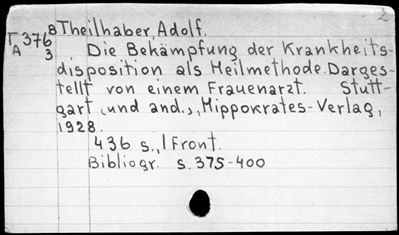 2
B Theilhaber, Adolf.
Γ 376
A 3 Die Bekämpfung der Krankheits-
disposition als Heilmethode. Darges-
tellt von einem Frauenarzt. Stutt-
gart (und and.), Hippokrates-Verlag,
1928.
436 s., 1 Front.
Bibliogr. s. 375-400